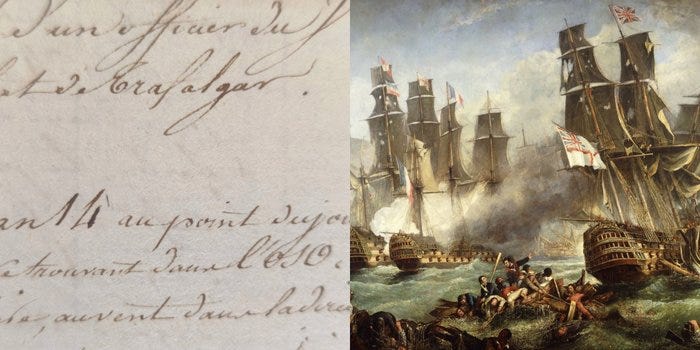 d'un officier du
et de Trafalgar.
an 14 au point du jou
trouvant dans l'ESO
au vent dans la dire